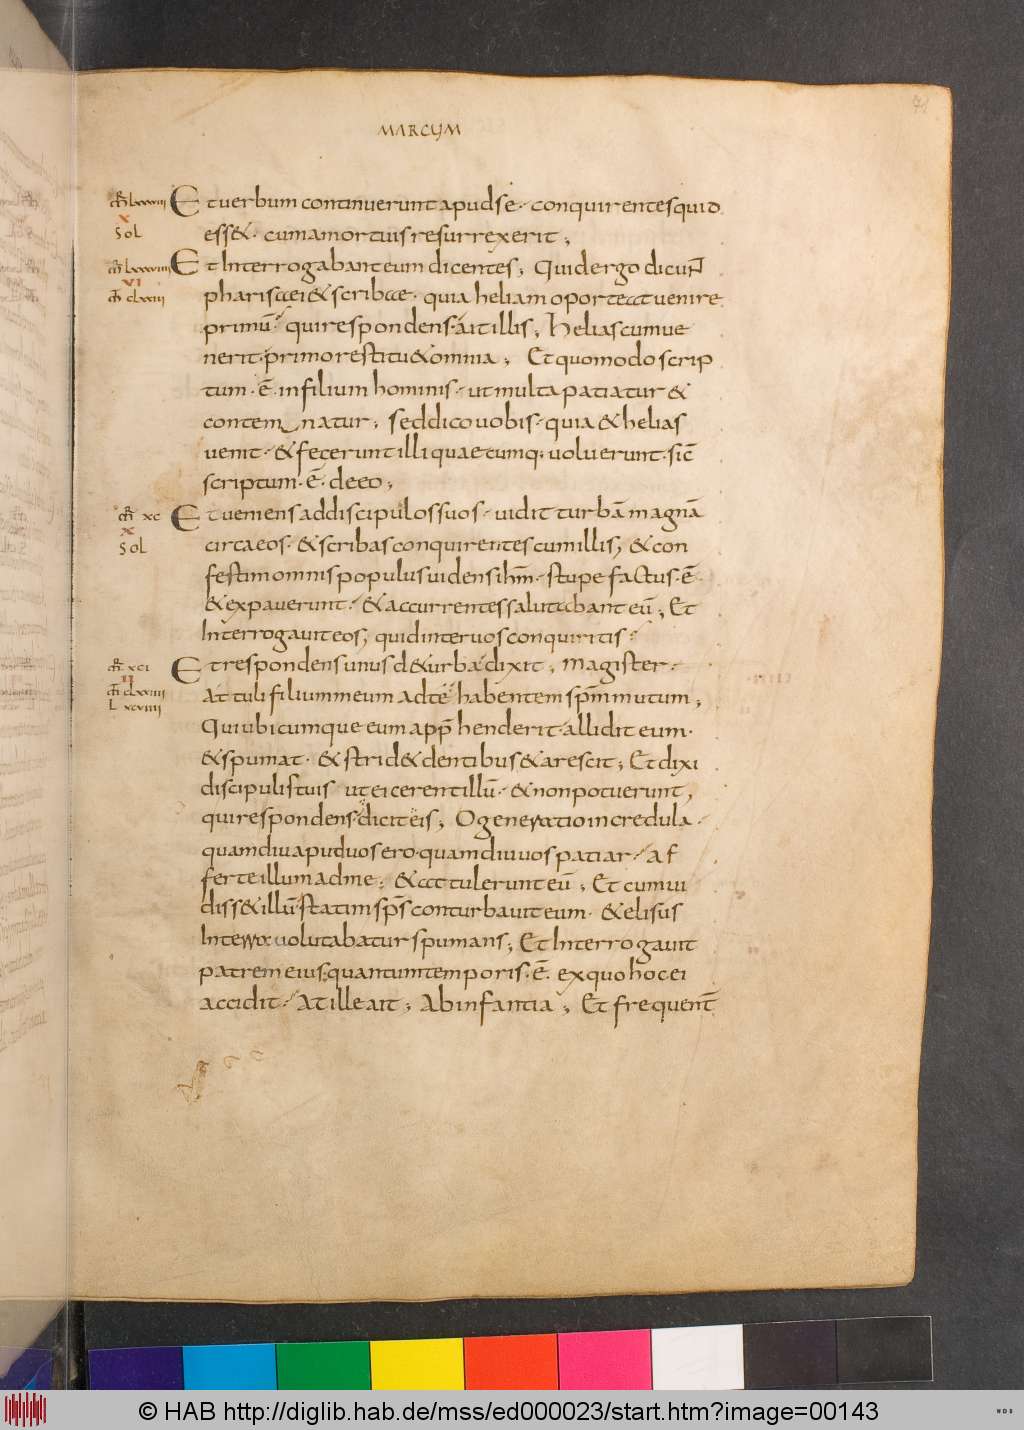 71
MARCUM
mr lxxxviii
x
Sol
Et verbum continuerunt apud se · conquirentes quid
ess& · cum a mortuis resurrexerit ;
mr lxxxviiii
VI
mt clxxiii
Et Interrogabant eum dicentes ; Quid ergo dicunt
pharisaei & scribae · quia heliam oportet venire
primū · qui respondens · ait illis ; Helias cum ue
nerit · primo restitu& omnia ; Et quomodo scrip
tum · ē · in filium hominis · ut multa patiatur &
contemnatur ; sed dico vobis · quia & helias
venit · & fecerunt illi quaecumq; voluerunt · sic̄
scriptum · ē · de eo ;
mr xc
x
Sol
Et veniens ad discipulos suos · vidit turbā magnā
circa eos · & scribas conquirentes cum illis, & con
festim omnis populus videns ihm̄ · stupefactus · ē ·
& expaverunt · & accurrentes salutabant eū ; Et
Interrogavit eos, quid inter vos conquiritis ·
mr xci
II
mt clxxiiii
L xcviiii
Et respondens unus d& urba dixit ; Magister ·
attuli filium meum ad te habentem spm̄ mutum ;
Qui ubicumque eum app̄henderit · allidit eum ·
& spumat · & strid& dentibus & arescit ; Et dixi
discipulis tuis ut eicerent illū · & non potuerunt,
qui respondens · dicit eis ; O generatio incredula ·
quamdiu apud vos ero · quamdiu vos patiar · Af
ferte illum ad me ; & attulerunt eū ; Et cum vi
diss& illū · statim sps̄ conturbavit eum · & elisus
In terra volutabatur spumans ; Et Interrogavit
patrem eius · quantum temporis · ē · ex quo hoc ei
accidit · At ille ait ; Ab infantia ; Et frequent̄
© HAB http://diglib.hab.de/mss/ed000023/start.htm?image=00143